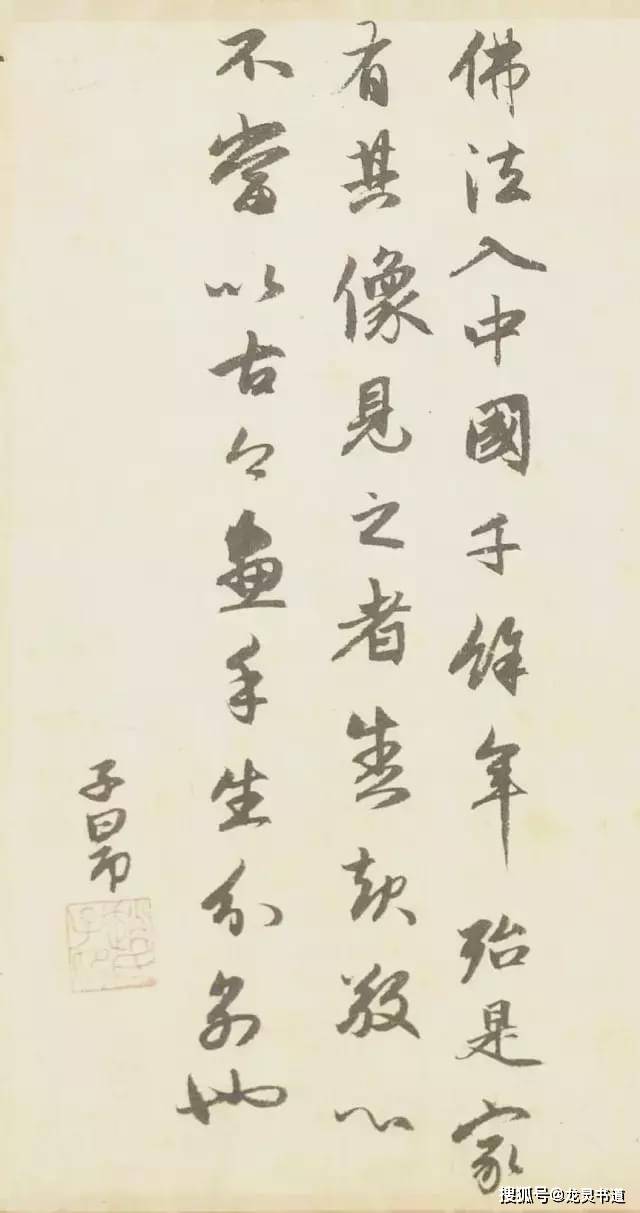 佛法入中國千餘年殆是家
有其像見之者盡起敬心
不當以古今畫手生分別也
子昂
搜狐号@龙灵书道